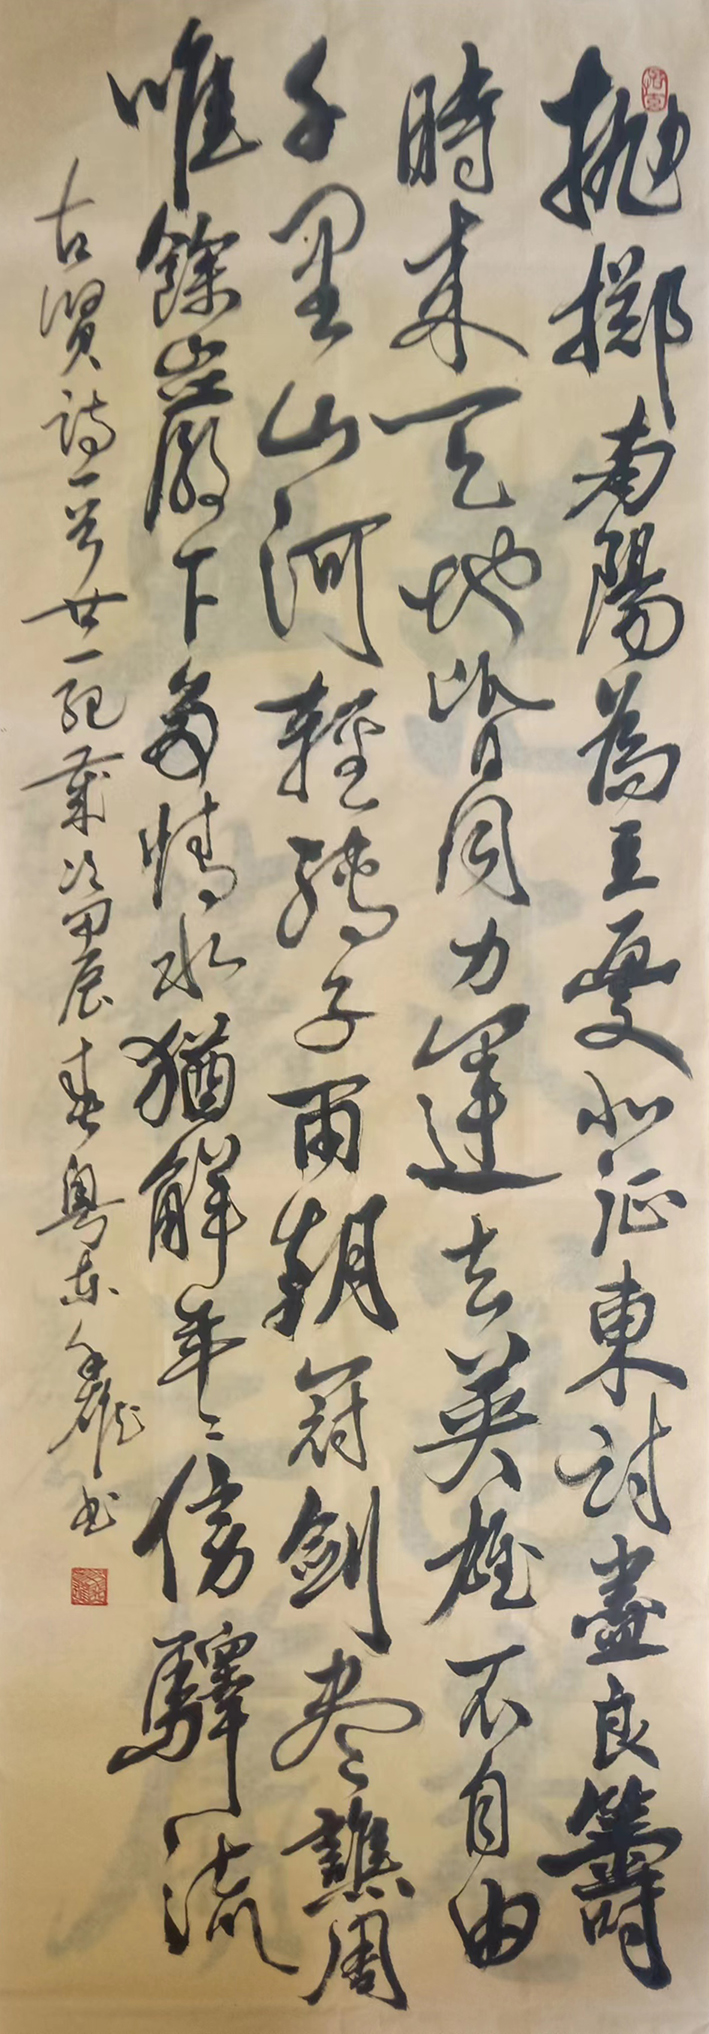 拋擲南陽為主憂北征東討盡良籌
時來天地皆同力運去英雄不自由
千里山河輕孺子兩朝冠劍尽譙周
唯餘巖下多情水猶解年々傍驛流
古賢詩一首廿一紀歲次甲辰春粵東雄書